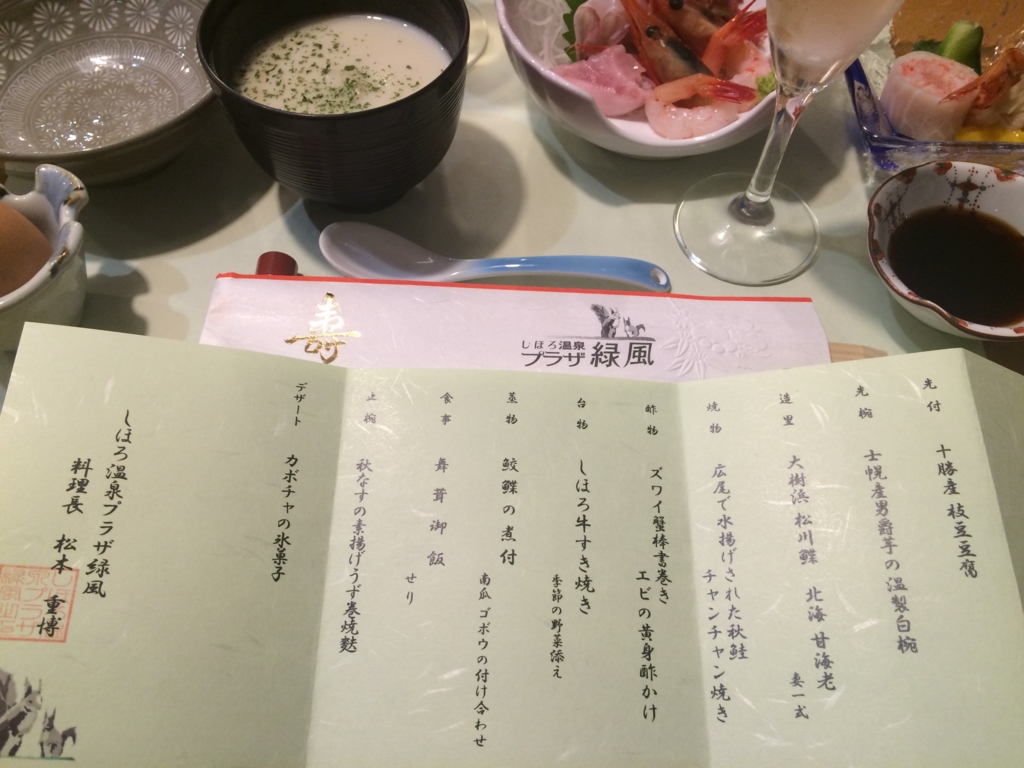 寿
しほろ温泉
プラザ緑風
先付
十勝産 枝豆豆腐
先椀
士幌産男爵芋の温製白椀
造里
大樹浜 松川鰈 北海 甘海老
妻一式
焼物
広尾で水揚げされた秋鮭
チャンチャン焼き
酢物
ズワイ蟹棒書巻き
エビの黄身酢かけ
台物
しほろ牛すき焼き
季節の野菜添え
蒸物
鮫鰈の煮付
南瓜 ゴボウの付け合わせ
食事
舞茸御飯
せり
止椀
秋なすの素揚げうず巻焼麩
デザート
カボチャの氷菓子
しほろ温泉プラザ緑風
料理長 松本 重博